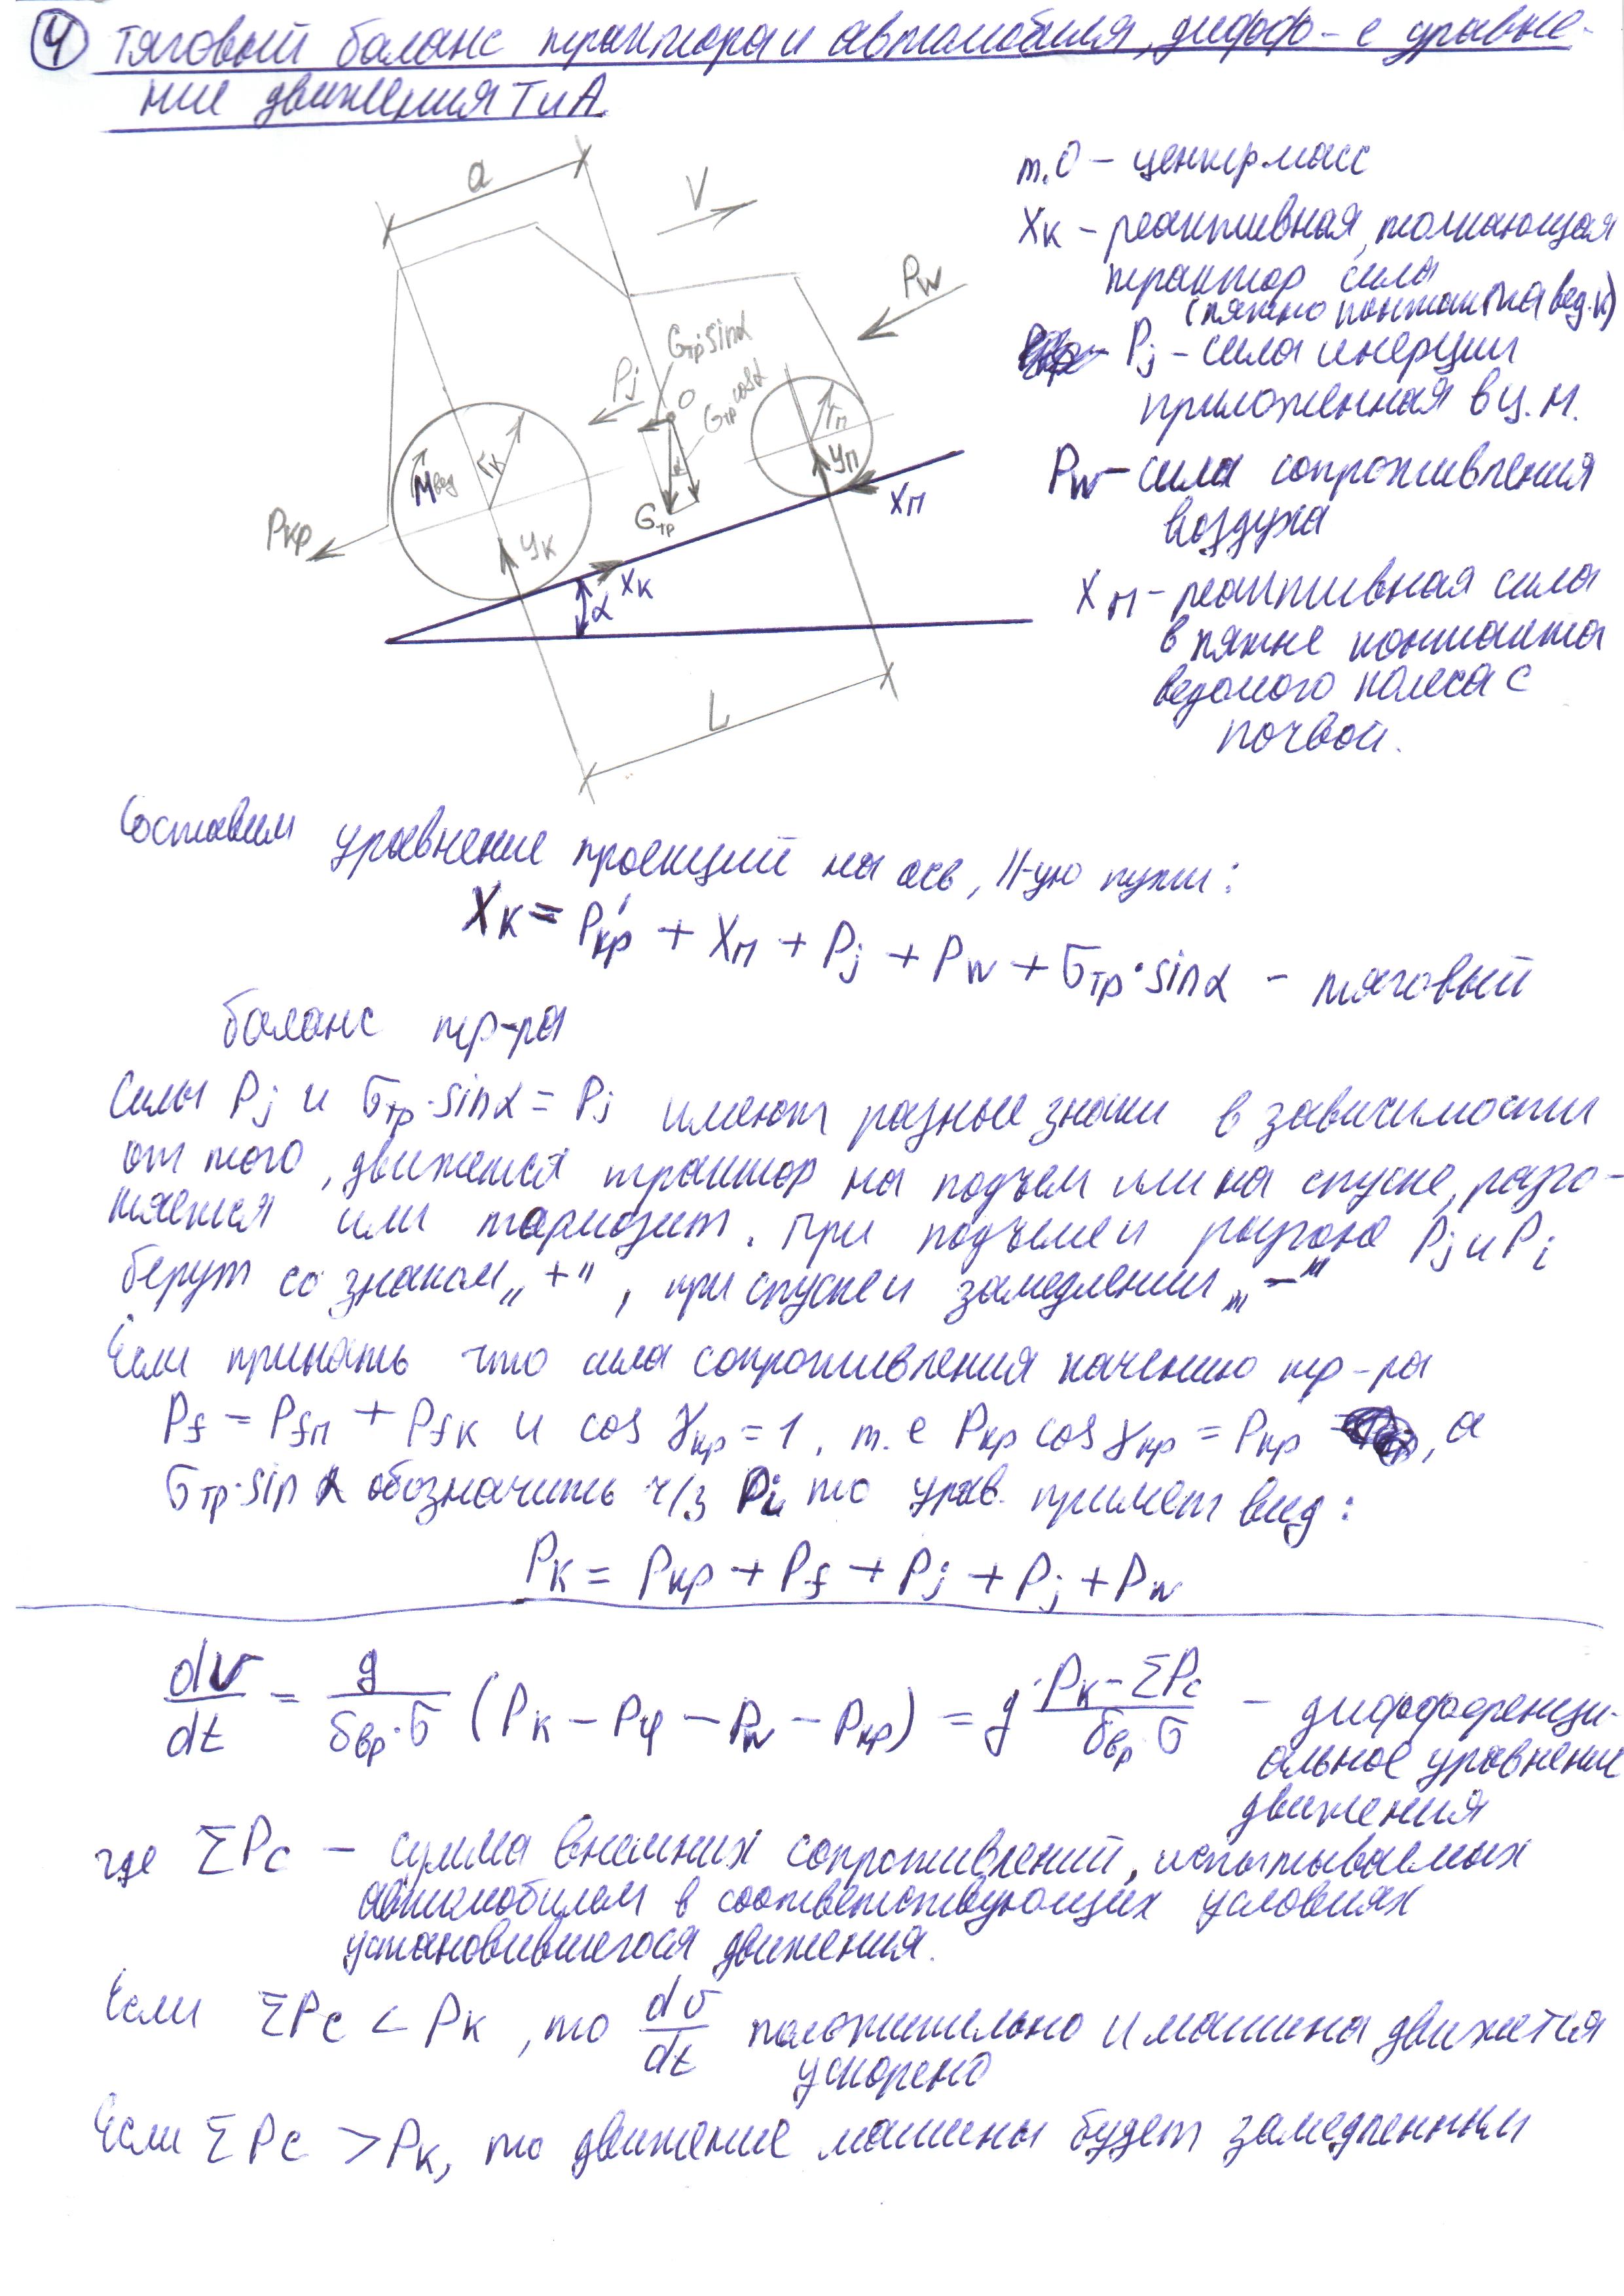 4 Тяговый баланс трактора и автомобиля, дифф-е уравне-
ние движения ТиА.
a
V
т.О – центр масс
Xк – реактивная, толкающая
трактор сила
(пятно контакта вед. к)
Pw
Gтр sinα
Pj
O
Gтр cosα
Pj – сила инерции
приложенная в ц.м.
rк
rп
Mвед
yп
α
Xп
Gтр
Pкр
yк
Xк
α
L
Pw – сила сопротивления
воздуха
Xп – реактивная сила
в пятне контакта
ведомого колеса с
почвой.
Составим уравнение проекций на ось, ||-ую пути:
Xк = P'кр + Xп + Pj + Pw + Gтр·sinα – тяговый
баланс тр-ра
Силы Pj и Gтр·sinα = Pj имеют разные знаки в зависимости
от того, движется трактор на подъем или на спуске, разго-
няется или тормозит. При подъеме и разгоне Pj и Pi
берут со знаком „+“, при спуске и замедлении „–“
Если принять что сила сопротивления качению тр-ра
Pf = Pfп + Pfк и cos γкр = 1, т.е Pкр cos γкр = Pкр, а
Gтр·sin α обозначить ч/з Pi то урав. примет вид:
Pк = Pкр + Pf + Pj + Pj + Pw
dv/dt = g/(δвр·G) (Pк – Pψ – Pw – Pкр) = g·(Pк – ΣPc)/(δвр·G) – дифференци-
альное уравнение
движения
где ΣPc – сумма внешних сопротивлений, испытываемых
автомобилем в соответствующих условиях
установившегося движения.
Если ΣPc < Pк, то dv/dt положительно и машина движется
ускорено
Если ΣPc > Pк, то движение машины будет замедленным